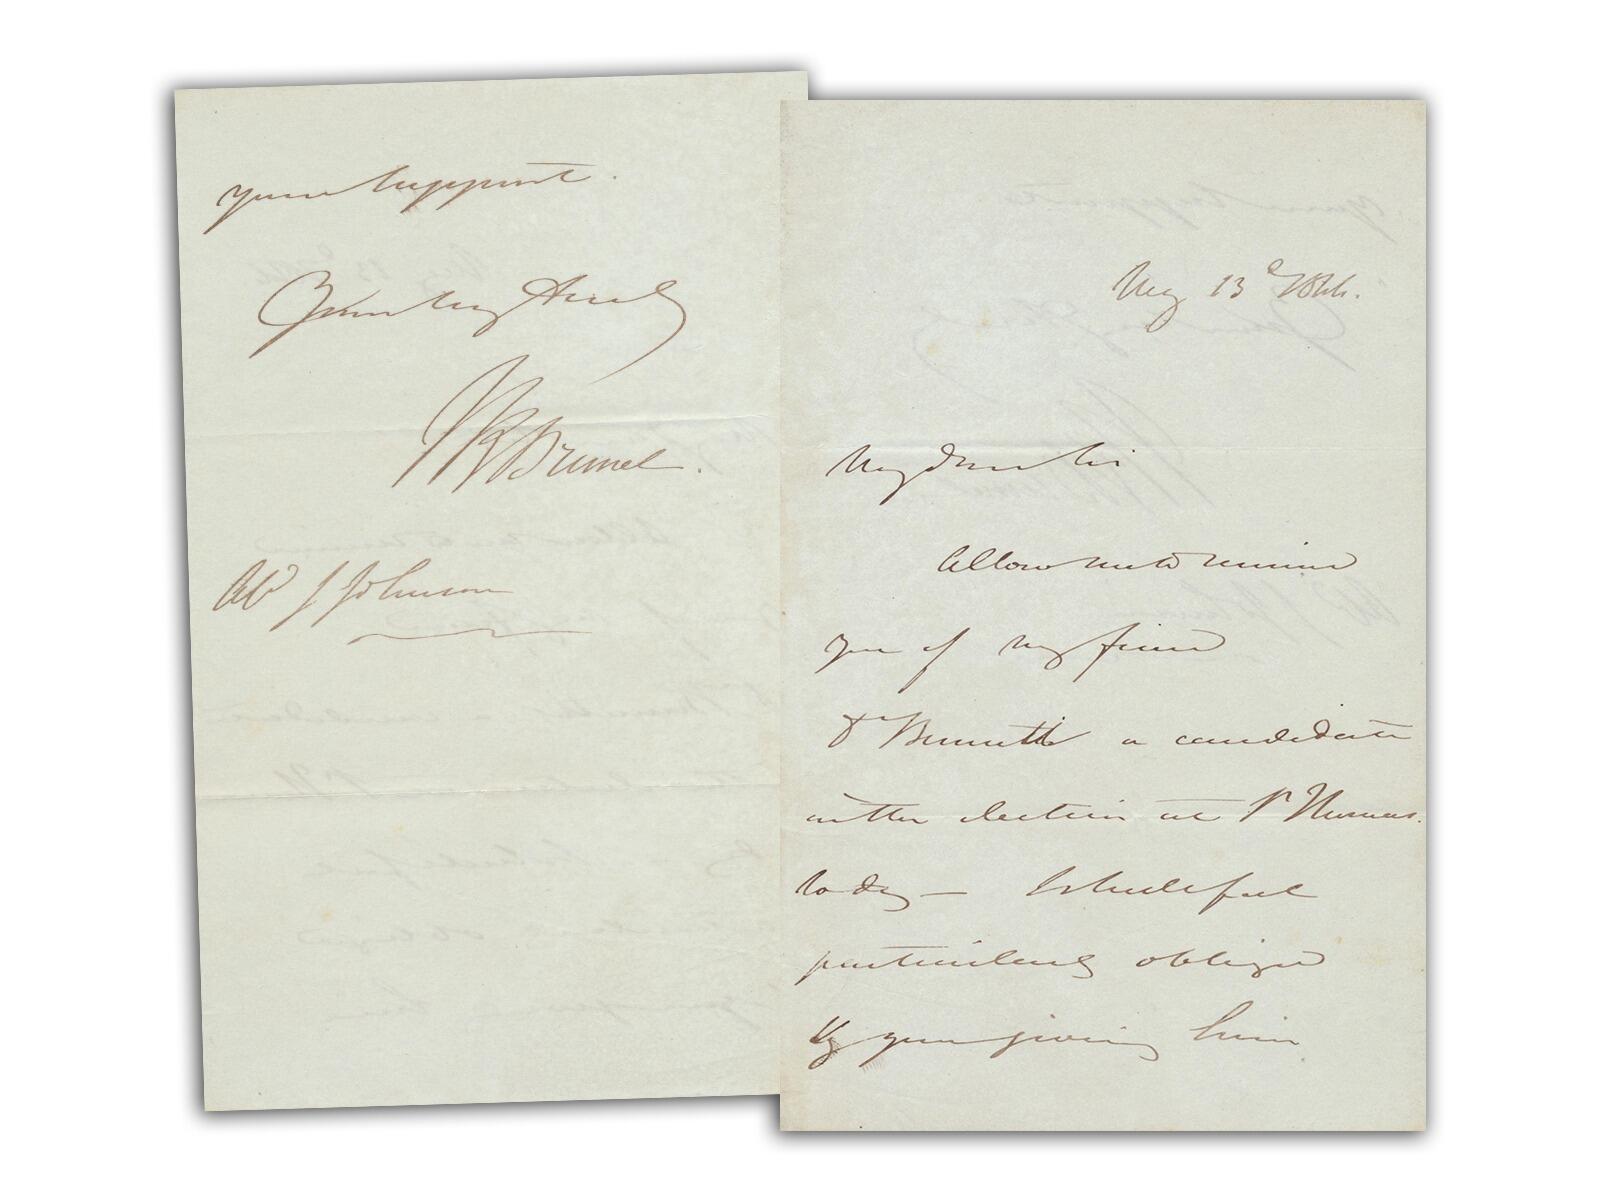 May 13th 1844.
My dear Sir
Allow me to remind
you of my friend
Dr Bennett a candidate
in the election at St Thomas.
to day — I should feel
particularly obliged
by your giving him
your support.
Yours very truly
I K Brunel.
Ald J Johnson